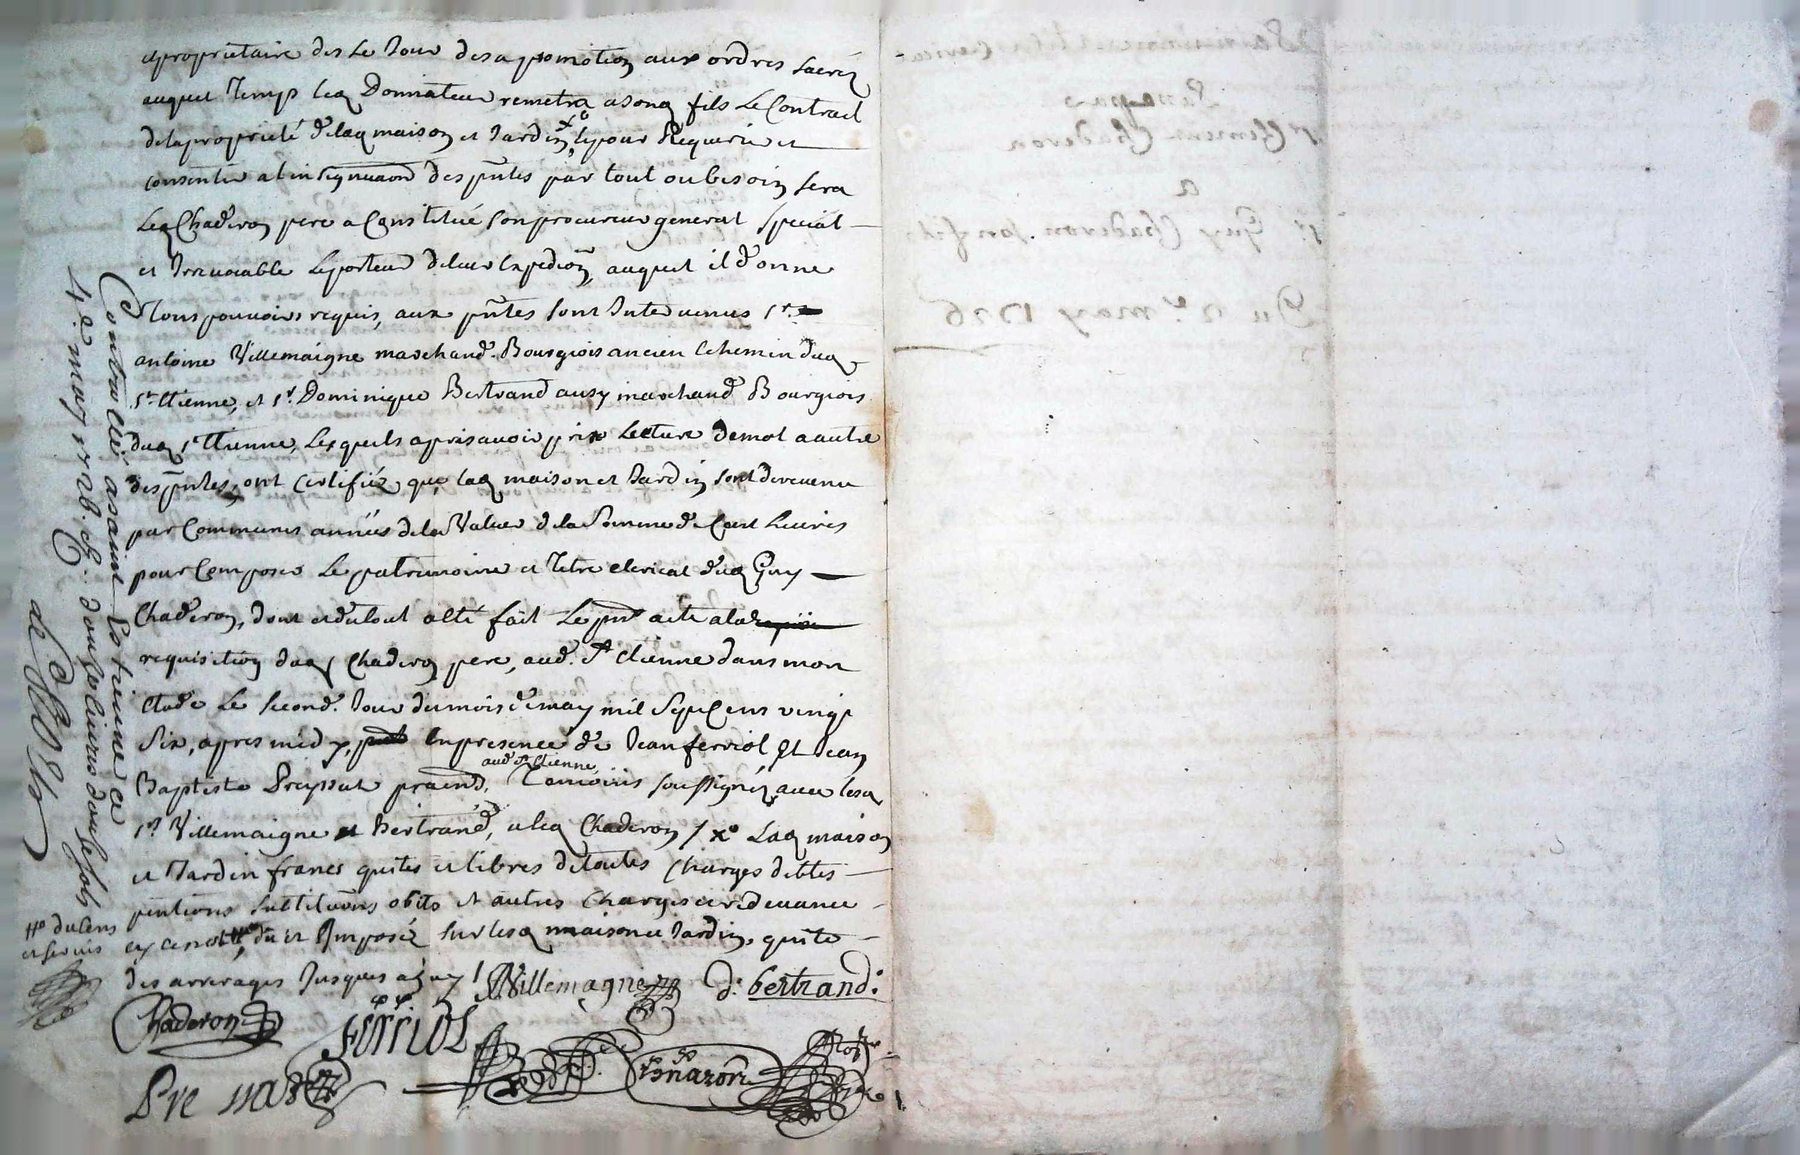 et propriettaire des Le Jour de sa promotion aux ordres sacréz
auquel Temp led. Donnateur remetra a son d. fils Le Contract
de la proprieté de lad. maison et Jardin, et pour Requerir et
consentir a l'insignuaōn des pn̄tes par tout ou besoin sera
Led. Chaderon pere a Constitué son procureur general special
et Irrevocable Le porteur de leur expediōn, auquel il donne
Tous pouvoirs requis, aux pn̄tes sont Intervenus sr.
antoine Villemaigne marchand Bourgiois ancien dud.
st. Etienne, et sr. Dominique Bertrand ausy marchand Bourgiois
dud. st Etienne, Lesquels apres avoir pris Lecture de mot a autre
des pn̄tes, ont Certifiéz que lad. maison et Jardin sont de revenu
par Communes années de la Valur de la Somme de Cent Livres
pour Composer Le patrimoine et Titre clerical dud. Guy
Chaderon, dont et du tout a été fait Le pnt acte a la
requisition dud. Chaderon pere, aud. st Etienne dans mon
Etude Le second. Jour du mois de may mil Sept Cens vingt
Six, apres midy, En presence de Jean ferriol Et Jean
aud. st Etienne
Baptiste Temoins soussignéz avec lesd.
srs. Villemaigne et Bertrand, et led. Chaderon / xo Lad. maison
et Jardin francs quites et libres de toutes Charges debtes
pentions substituōns obits et autres Charges et redevance
Imposéz sur lesd. maison et Jardin, quite
des arrerages Jusques a
Villemagne d. bertrand.
Chaderon
ferriol
Contrerollé a saint Estienne ce
4.e may 1726. R. douze livres douze sols
du Cens
et servis
Patrimoine et titre clerical
sr Clemens Chaderon
a
sr. Guy Chaderon son fils
Du 2e. may 1726